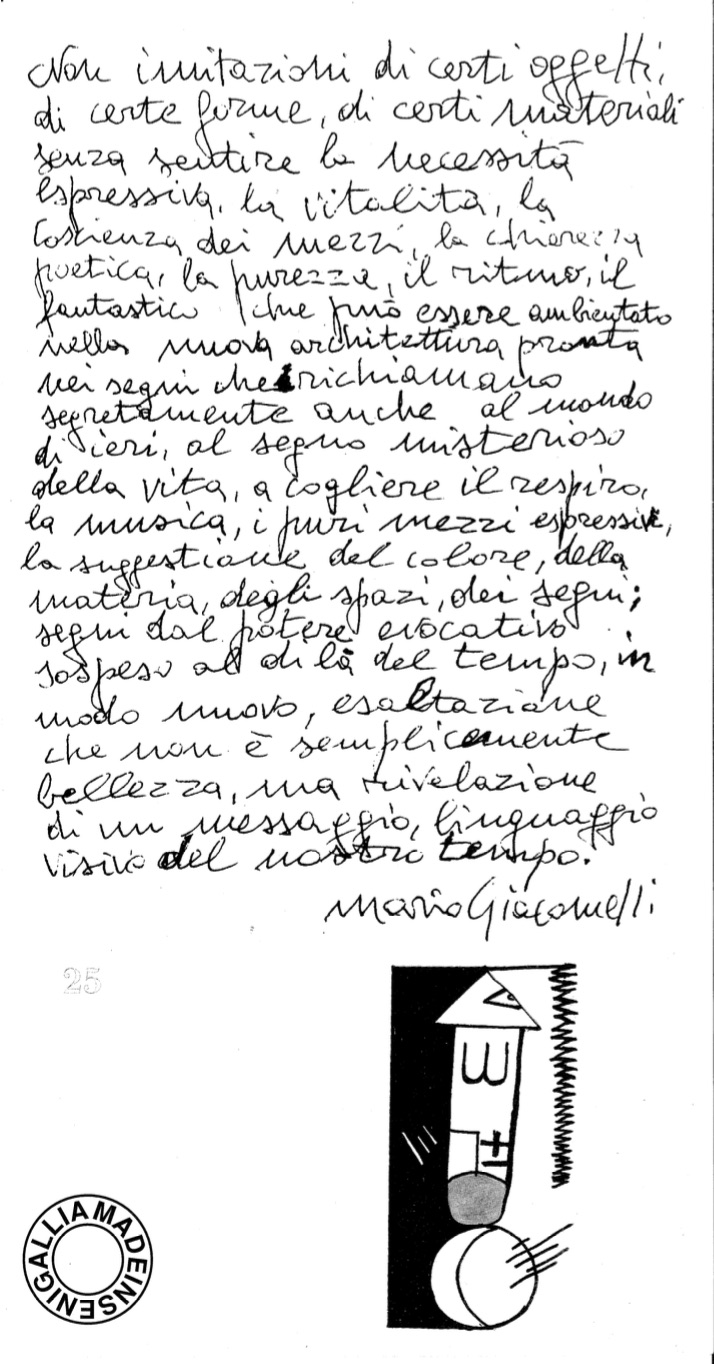 Non imitazioni di certi oggetti,
di certe forme, di certi materiali
senza sentire la necessità
espressiva, la vitalità, la
coscienza dei mezzi, la chiarezza
poetica, la purezza, il ritmo, il
fantastico che può essere ambientato
nella nuova architettura pronta
nei segni che richiamano
segretamente anche al mondo
di ieri, al segno misterioso
della vita, a cogliere il respiro,
la musica, i puri mezzi espressivi,
la suggestione del colore, della
materia, degli spazi, dei segni;
segni dal potere evocativo
sospeso al di là del tempo, in
modo nuovo, esaltazione
che non è semplicemente
bellezza, ma rivelazione
di un messaggio, linguaggio
visivo del nostro tempo.
Mario Giacomelli
25
MADEINSENIGALLIA